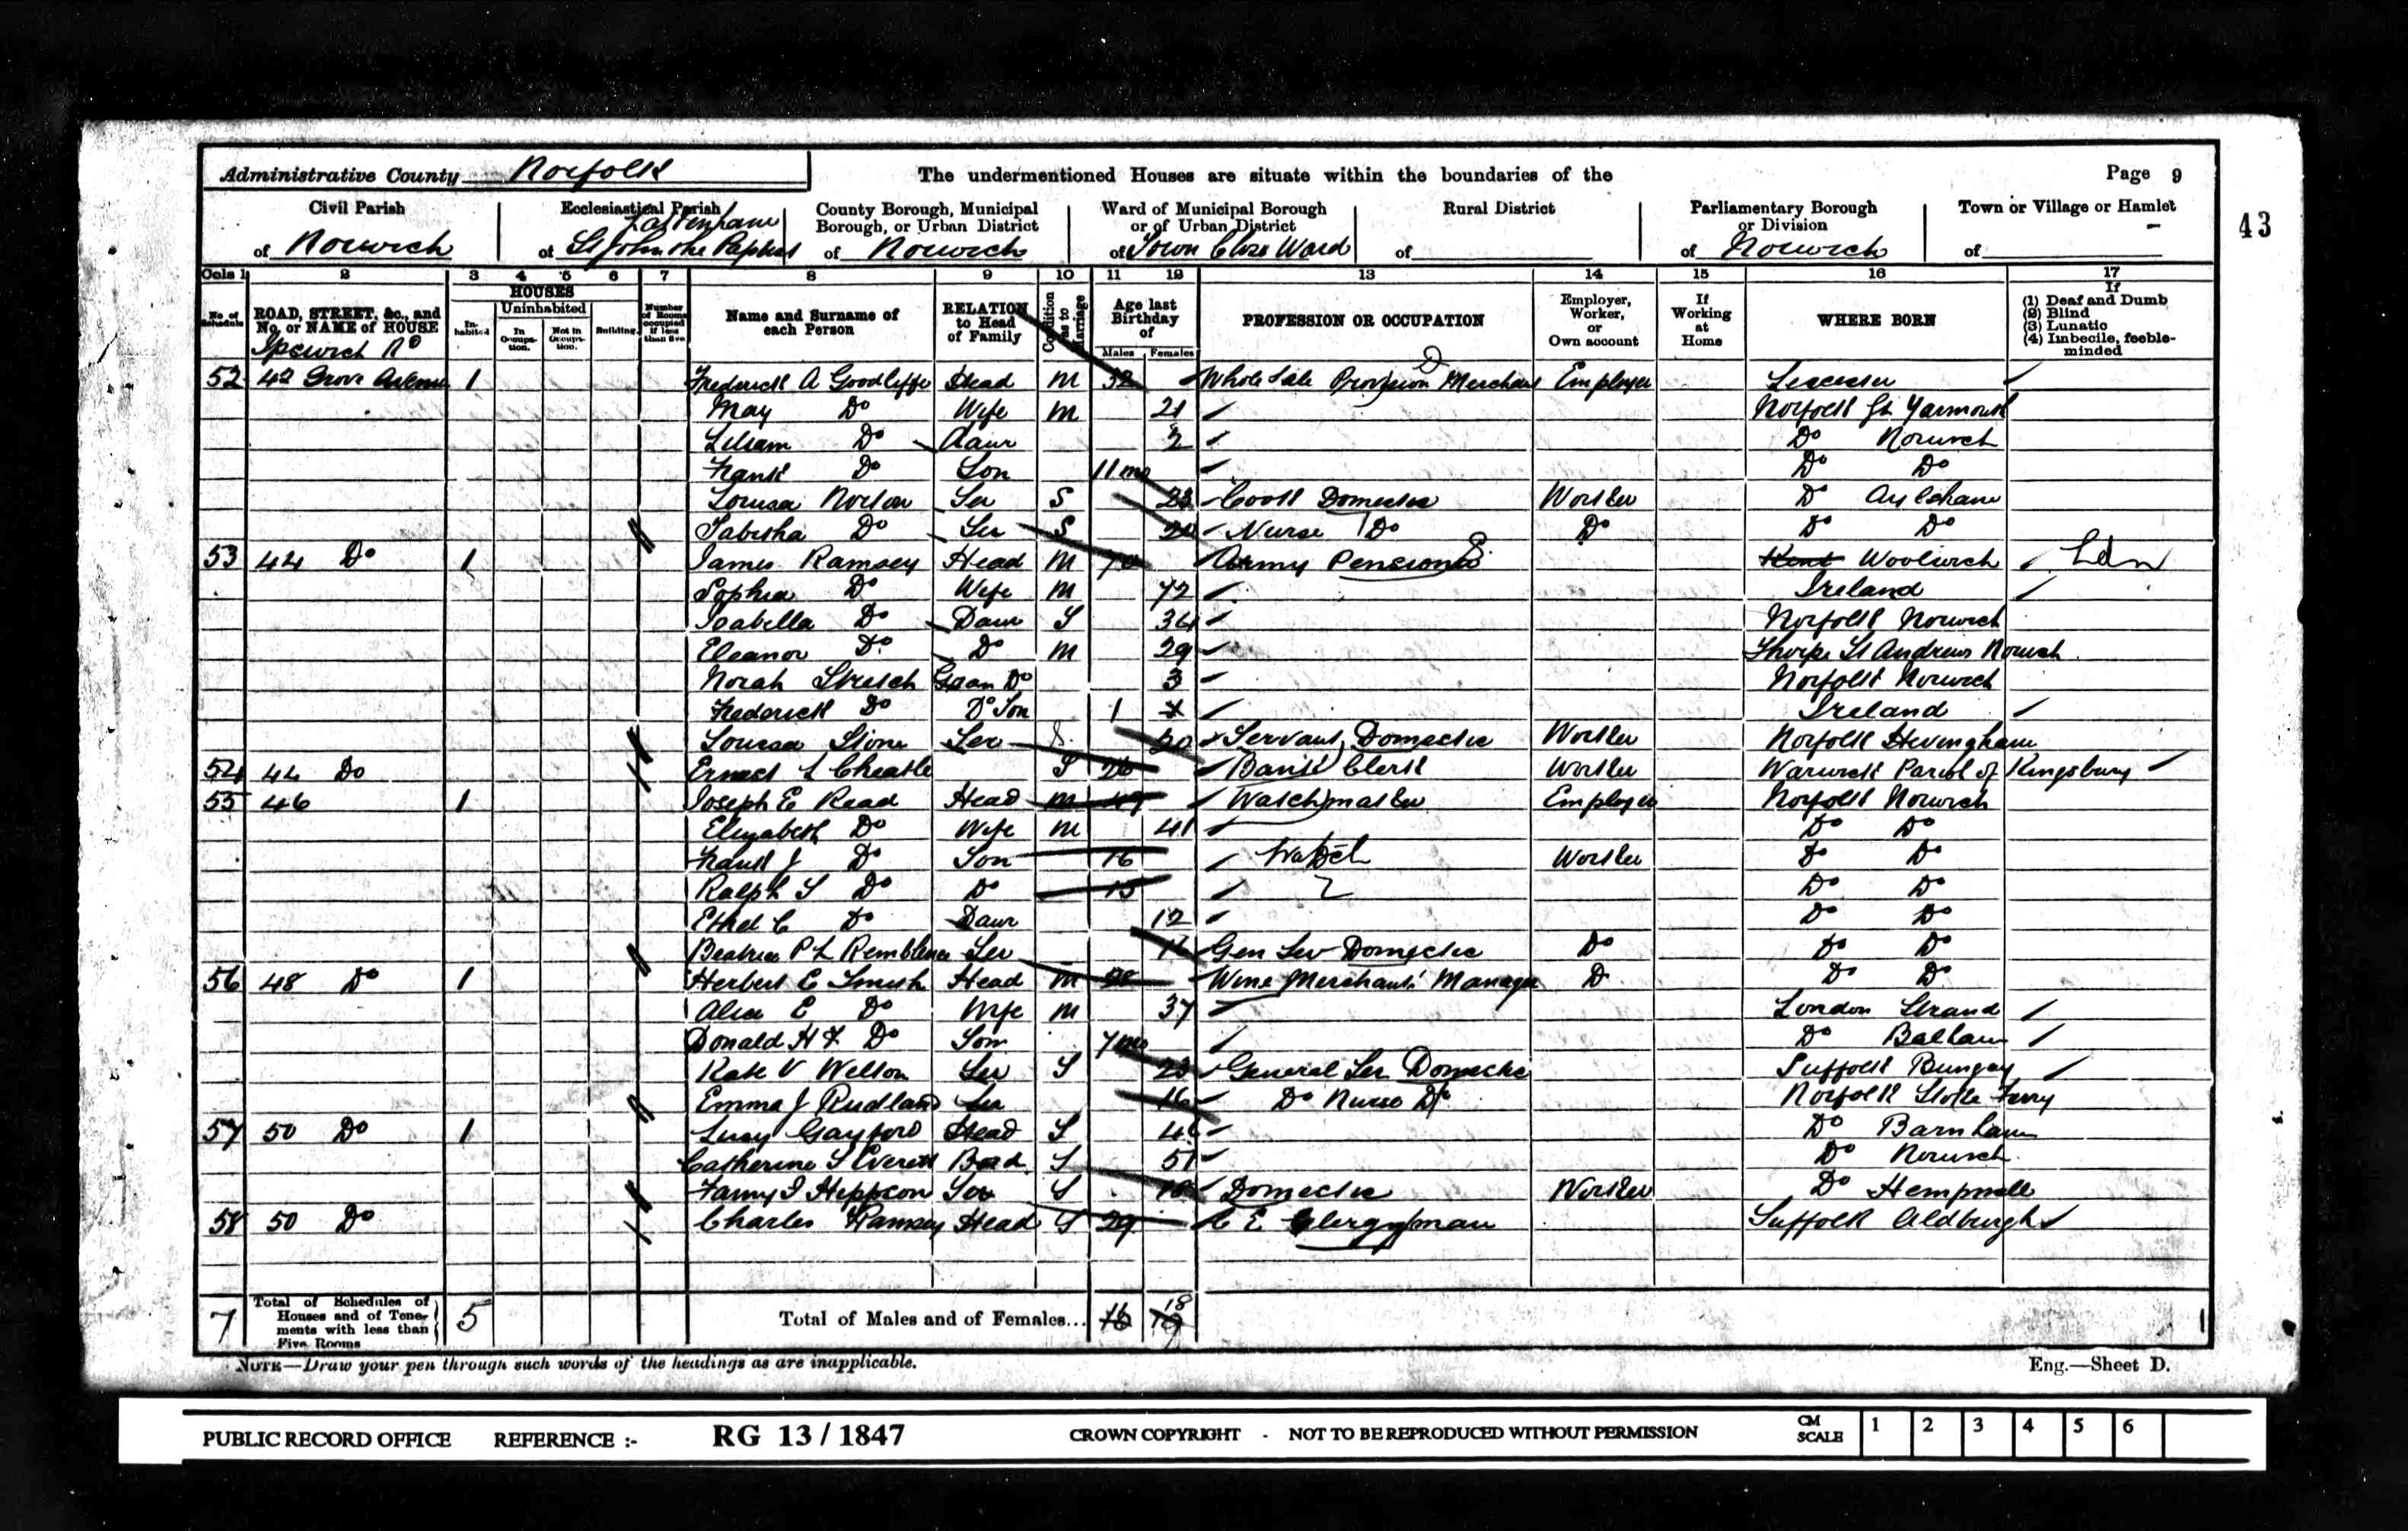 Administrative County Norfolk
The undermentioned Houses are situate within the boundaries of the
Page 9
43
Civil Parish of Norwich
Ecclesiastical Parish of Lakenham St John the Baptist
County Borough, Municipal Borough, or Urban District of Norwich
Ward of Municipal Borough or of Urban District of Town Close Ward
Rural District of
Parliamentary Borough or Division of Norwich
Town or Village or Hamlet of -
Cols 1 2 3 4 5 6 7 8 9 10 11 12 13 14 15 16 17
No. of Schedule
ROAD, STREET, &c., and No. or NAME of HOUSE
Ipswich Rd
HOUSES
Inhabited
Uninhabited
In Occupation.
Not in Occupation.
Building
Number of Rooms occupied if less than five
Name and Surname of each Person
RELATION to Head of Family
Condition as to Marriage
Age last Birthday of
Males Females
PROFESSION OR OCCUPATION
Employer, Worker, or Own account
If Working at Home
WHERE BORN
If
(1) Deaf and Dumb
(2) Blind
(3) Lunatic
(4) Imbecile, feeble-minded
52 42 Grove Avenue 1 Frederick A Goodliffe Head M 32 Whole Sale Provision Merchant Employer Leicester
May Do Wife M 21 Norfolk Gt Yarmouth
Lilian Do Daur 2 Do Norwich
Frank Do Son 11 mo Do Do
Louisa Norton Ser S 23 Cook Domestic Worker Do Aylsham
Tabitha Do Ser S 20 Nurse Do Do Do Do
53 44 Do 1 James Ramsey Head M 70 Army Pensioner Kent Woolwich Ldn
Sophia Do Wife M 72 Ireland
Isabella Do Daur S 34 Norfolk Norwich
Eleanor Do Do M 29 Thorpe St Andrews Norwich
Norah Stretch Gran Do 3 Norfolk Norwich
Frederick Do Do Son 1 Ireland
Louisa Stone Ser S 20 Servant, Domestic Worker Norfolk Hevingham
54 44 Do Ernest L Cheatle S 26 Bank Clerk Worker Warwick Parish of Kingsbury
55 46 1 Joseph E Read Head M 49 Watchmaker Employer Norfolk Norwich
Elizabeth Do Wife M 41 Do Do
Frank J Do Son 16 Watch Worker Do Do
Ralph S Do Do 15 Do Do
Ethel C Do Daur 12 Do Do
Beatrice P L Remblence Ser Gen Ser Domestic Do Do Do
56 48 Do 1 Herbert E Smith Head M 38 Wine Merchants' Manager D Do Do
Alice E Do Wife M 37 London Strand
Donald H F Do Son 7 mo Do Balham
Kate V Welton Ser S 23 General Ser Domestic Suffolk Bungay
Emma J Rudland Ser 16 Do Nurse Do Norfolk Stoke Ferry
57 50 Do 1 Lucy Gayford Head S Do Barnham
Catherine S Everett Board S 51 Do Norwich
Fanny I Heppson Ser S 18 Domestic Worker Do Hempnall
58 50 Do Charles Ramsay Head S 29 C E Clergyman Suffolk Aldburgh
7 Total of Schedules of Houses and of Tenements with less than Five Rooms 5 Total of Males and of Females... 16 18 19 1
NOTE—Draw your pen through such words of the headings as are inapplicable.
Eng.—Sheet D.
PUBLIC RECORD OFFICE REFERENCE :- RG 13 / 1847 CROWN COPYRIGHT - NOT TO BE REPRODUCED WITHOUT PERMISSION CM SCALE 1 2 3 4 5 6